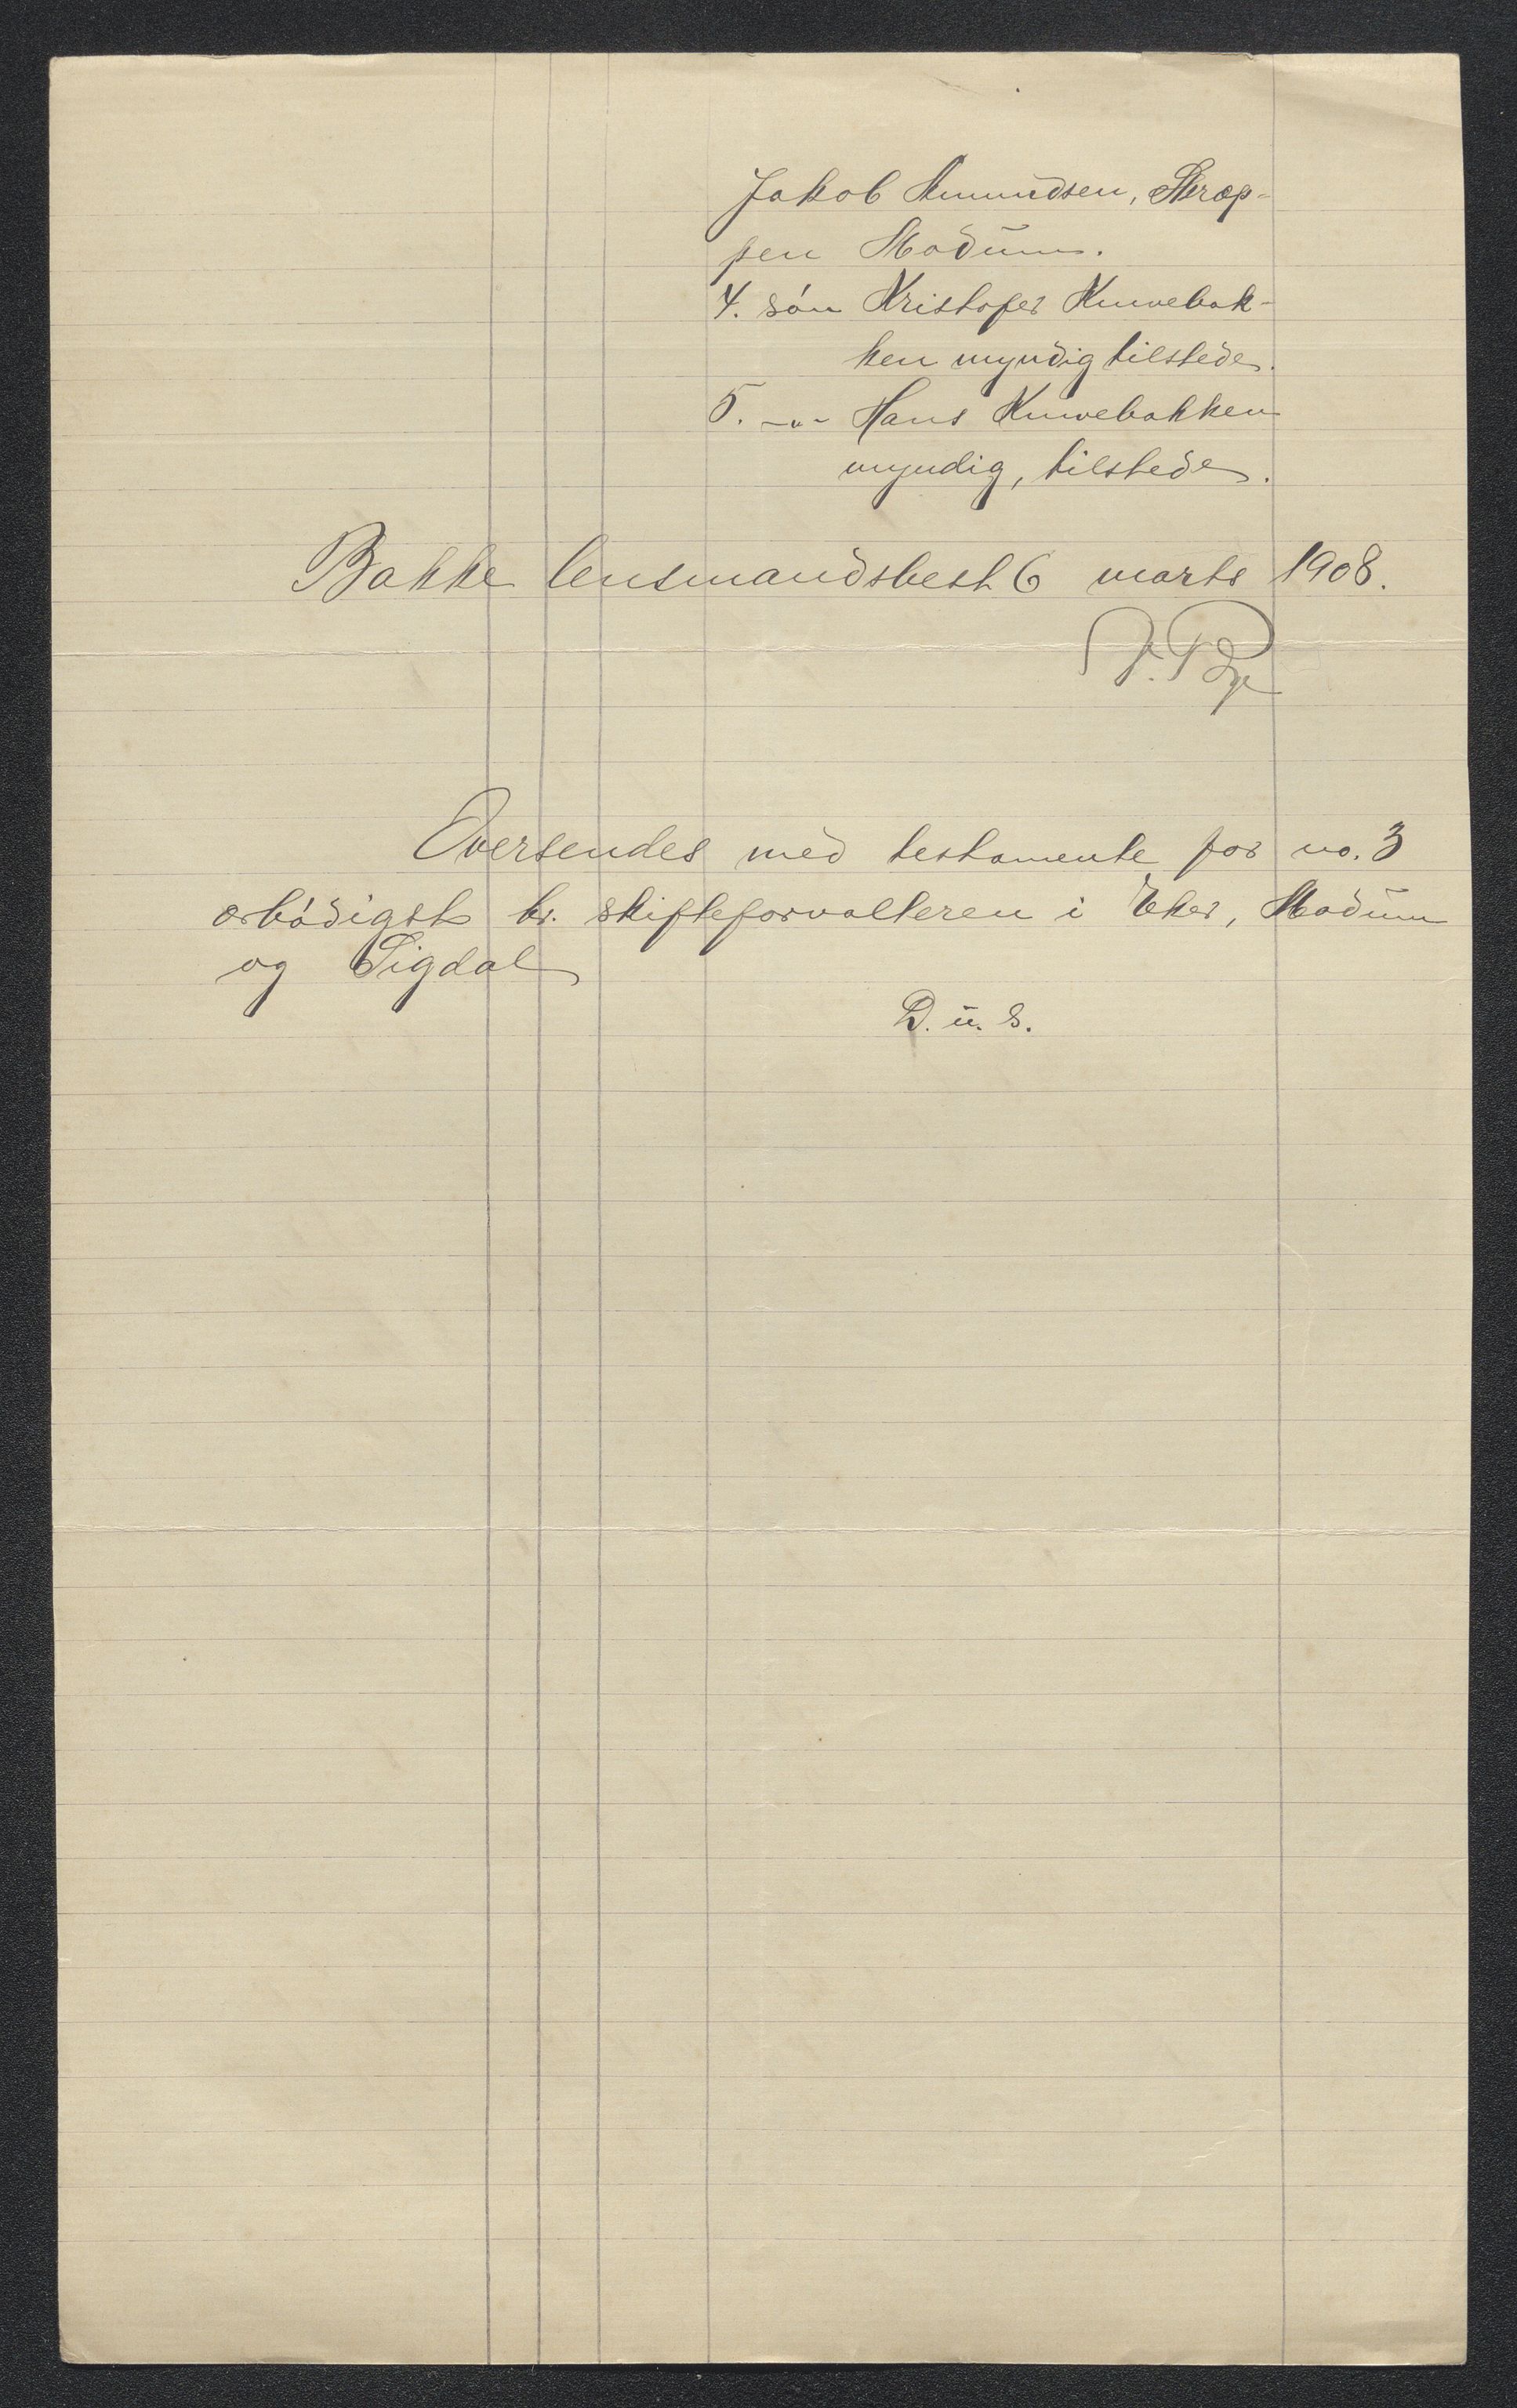 Jakob Amundsen, Skrep-
pen Modum.
4. søn Kristofer Knivebak-
ken myndig tilstede.
5. -"- Hans Knivebakken
myndig, tilstede.
Bakke lensmandsbest. 6 marts 1908.
Oversendes med testamente for no. 3
ærbødigst hr. skifteforvalteren i Eker, Modum
og Sigdal
D. u. s.